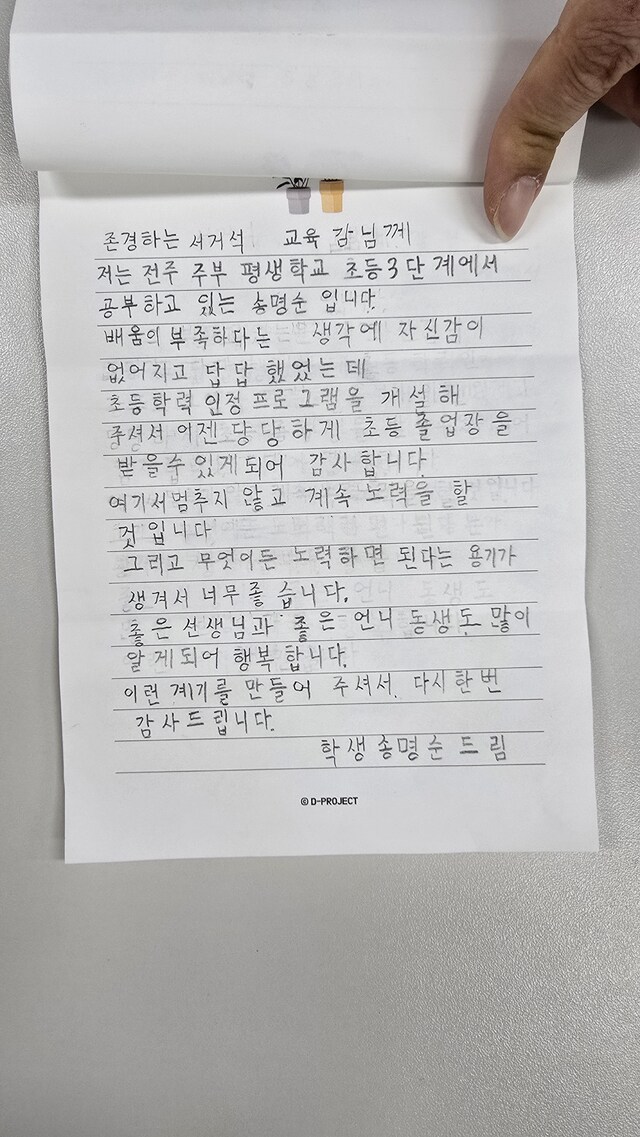 존경하는 서거석 교육감님께
저는 전주 주부 평생학교 초등3단계에서
공부하고 있는 송명순 입니다.
배움의 부족하다는 생각에 자신감이
없어지고 답답 했었는데
초등학력 인정 프로그램을 개설해
주셔서 이젠 당당하게 초등 졸업장을
받을수 있게되어 감사합니다
여기서멈추지 않고 계속 노력을 할
것입니다
그리고 무엇이든 노력하면 된다는 용기가
생겨서 너무좋습니다.
좋은선생님과 좋은 언니 동생도 많이
알게되어 행복합니다.
이런 계기를 만들어 주셔서. 다시한번
감사드립니다.
학생송명순드림
© D-PROJECT